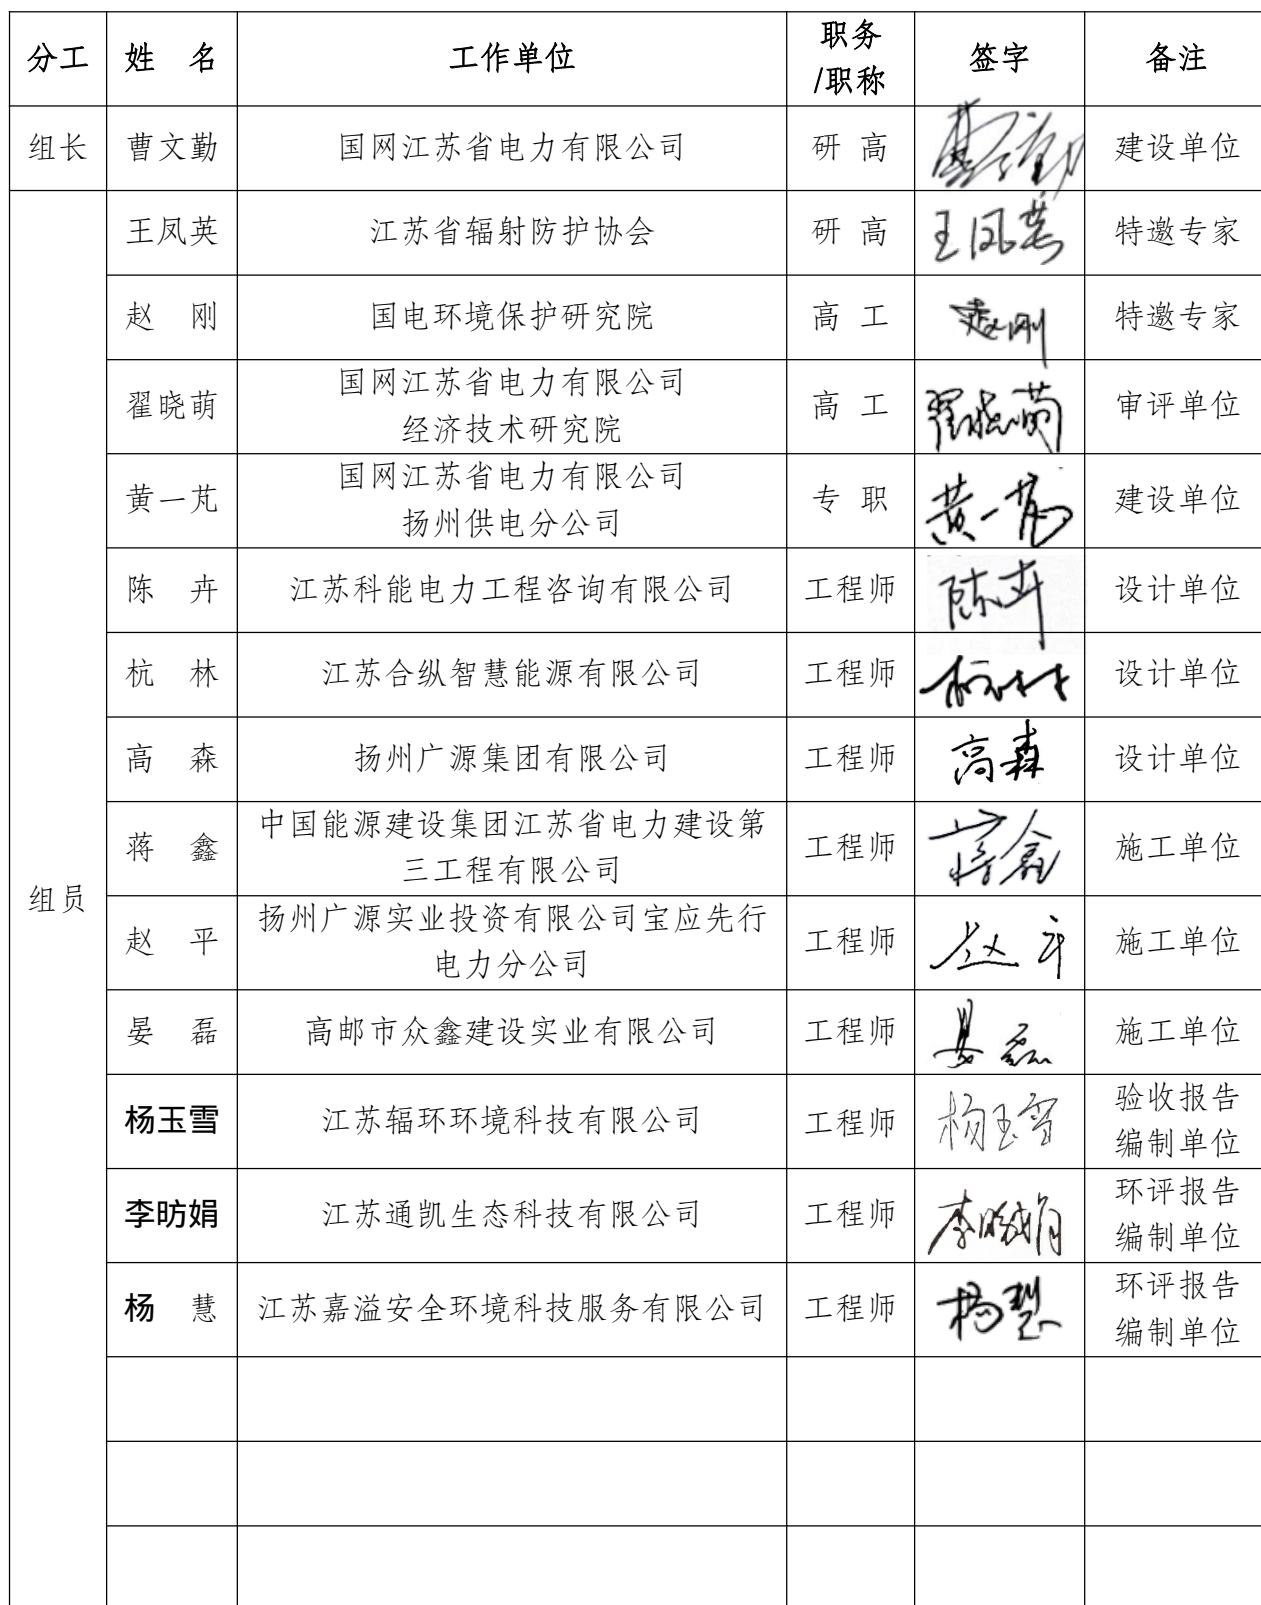 分工 姓 名 工作单位 职务/职称 签字 备注
组长 曹文勤 国网江苏省电力有限公司 研 高 曹文勤 建设单位
组员
王凤英 江苏省辐射防护协会 研 高 王凤英 特邀专家
赵 刚 国电环境保护研究院 高 工 赵刚 特邀专家
翟晓萌 国网江苏省电力有限公司
经济技术研究院 高 工 翟晓萌 审评单位
黄一芃 国网江苏省电力有限公司
扬州供电分公司 专 职 黄一芃 建设单位
陈 卉 江苏科能电力工程咨询有限公司 工程师 陈卉 设计单位
杭 林 江苏合纵智慧能源有限公司 工程师 杭林 设计单位
高 森 扬州广源集团有限公司 工程师 高森 设计单位
蒋 鑫 中国能源建设集团江苏省电力建设第
三工程有限公司 工程师 蒋鑫 施工单位
赵 平 扬州广源实业投资有限公司宝应先行
电力分公司 工程师 赵平 施工单位
晏 磊 高邮市众鑫建设实业有限公司 工程师 晏磊 施工单位
杨玉雪 江苏辐环环境科技有限公司 工程师 杨玉雪 验收报告
编制单位
李昉娟 江苏通凯生态科技有限公司 工程师 李昉娟 环评报告
编制单位
杨 慧 江苏嘉溢安全环境科技服务有限公司 工程师 杨慧 环评报告
编制单位